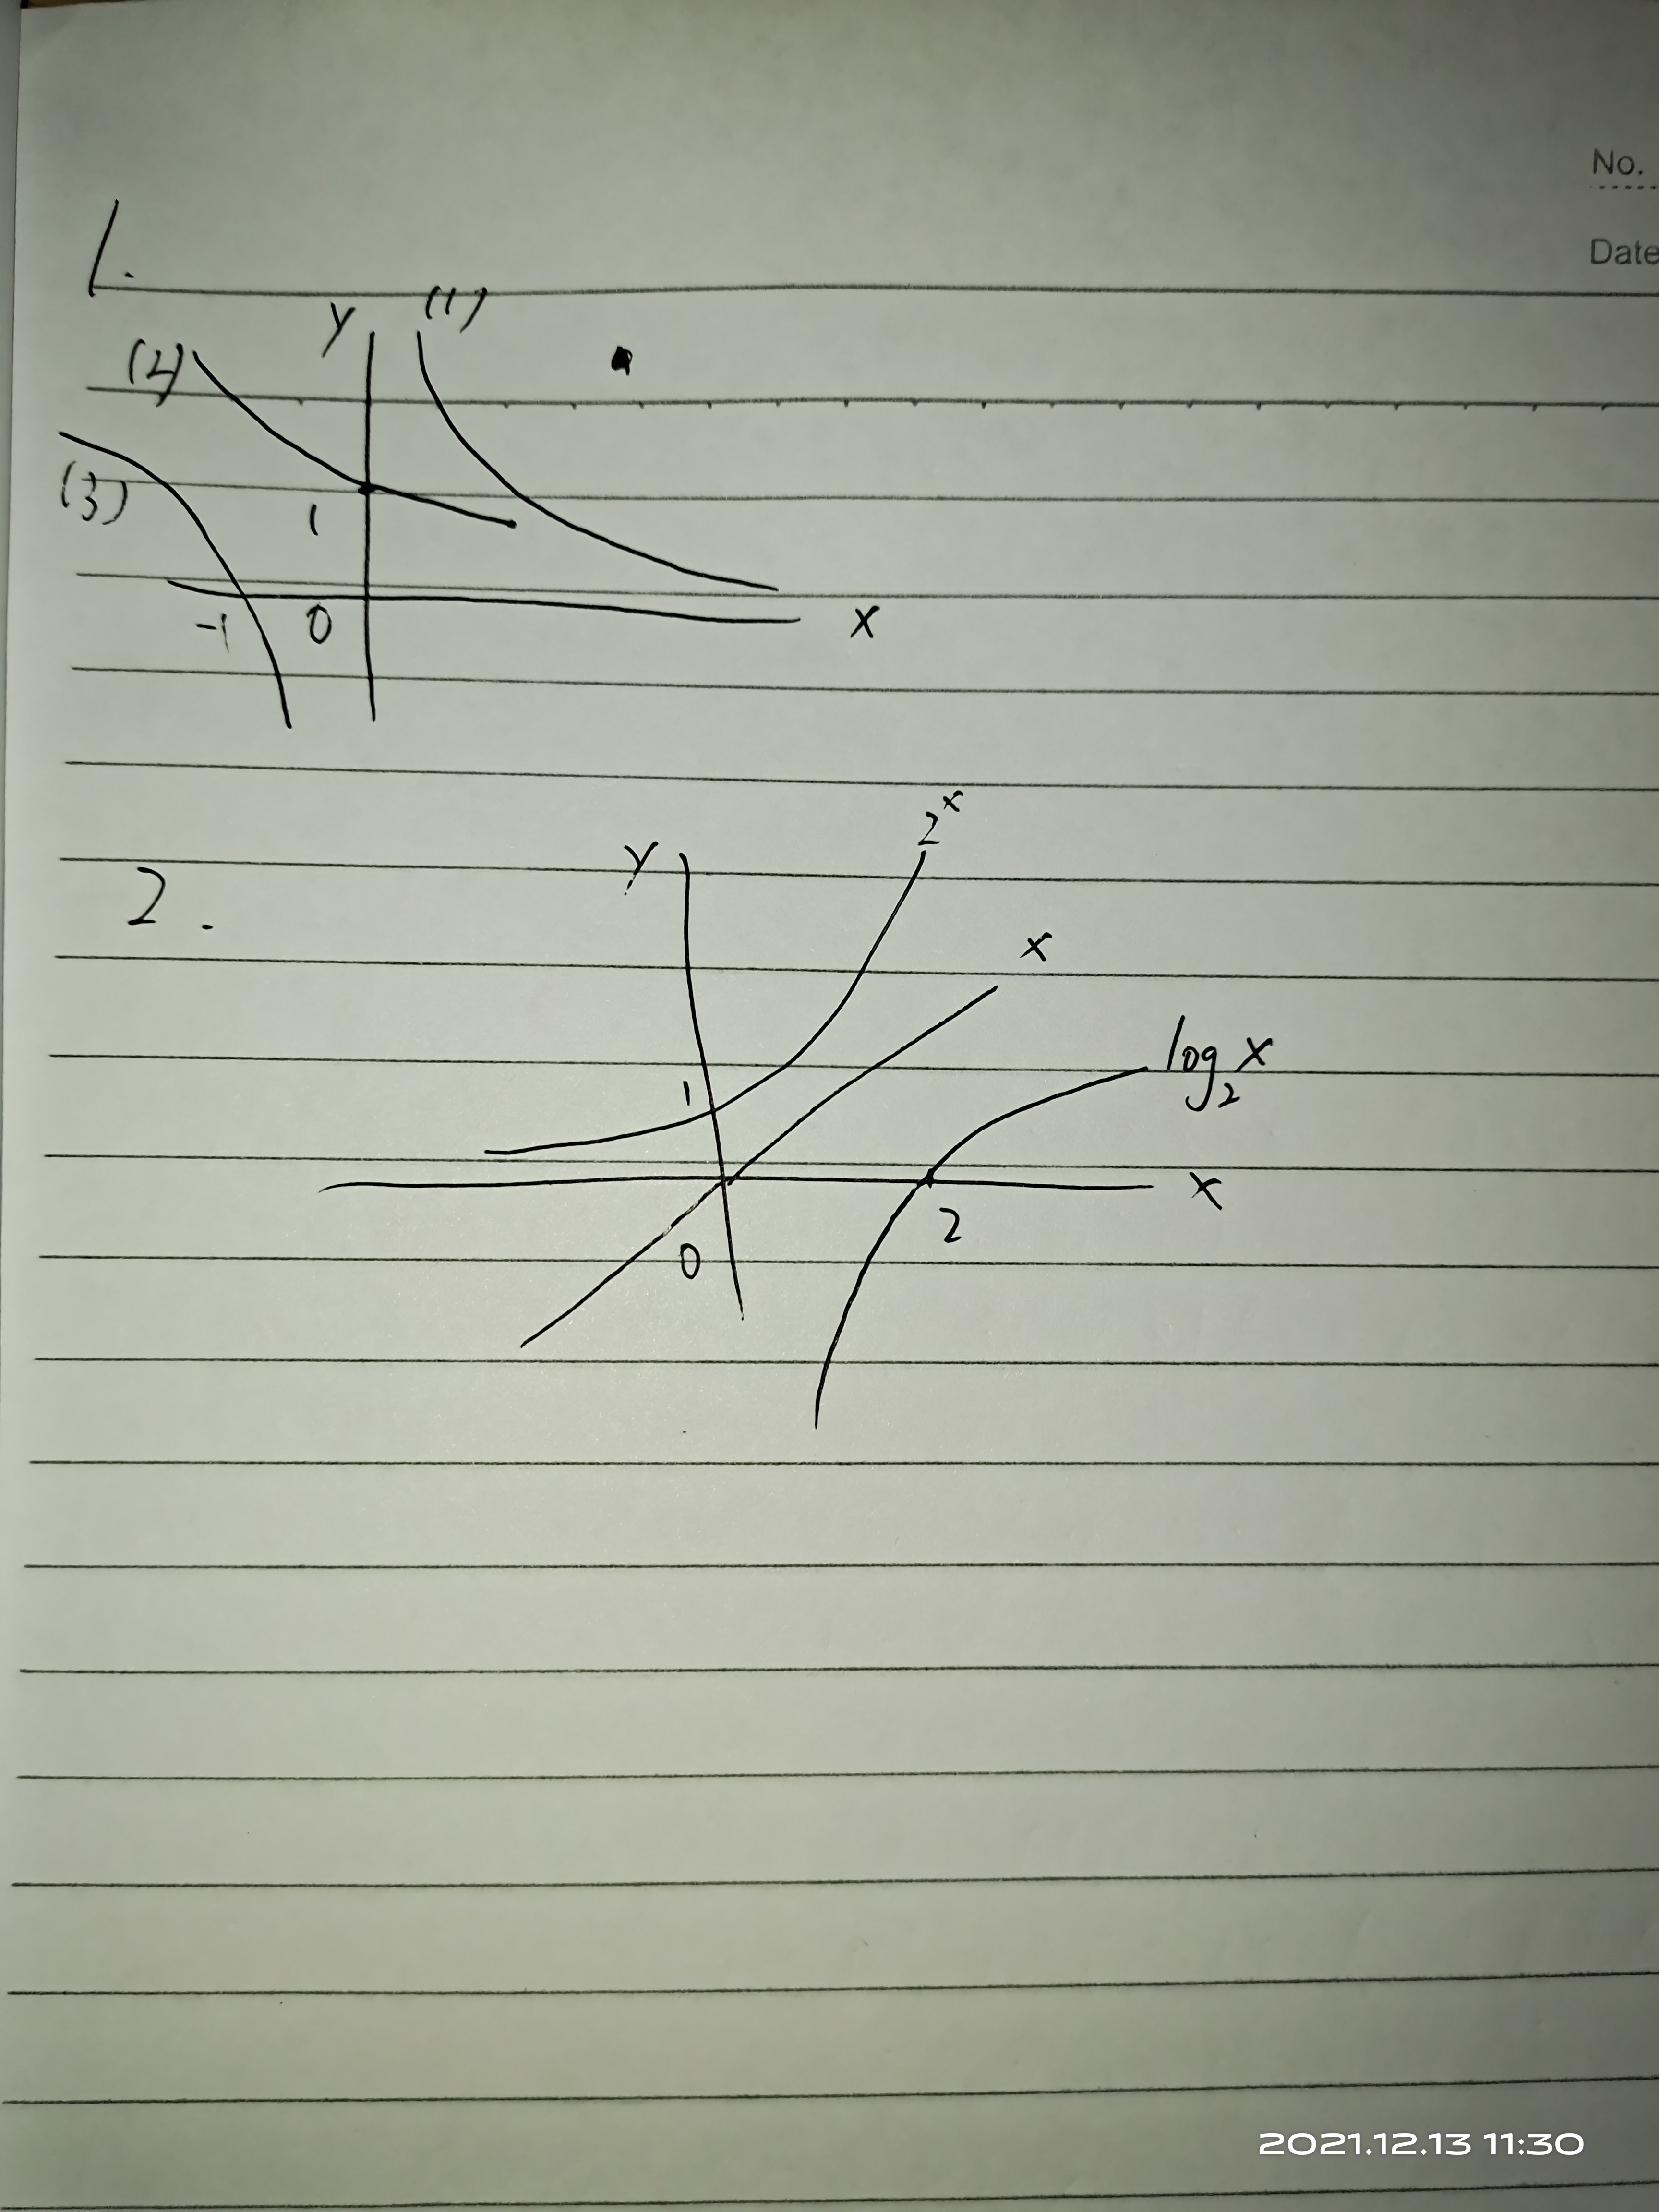 No.
Date
1.
y (1)
(2)
(3)
1
-1 0 x
2.
2^x
y
x
log₂x
1
x
2
0
2021.12.13 11:30